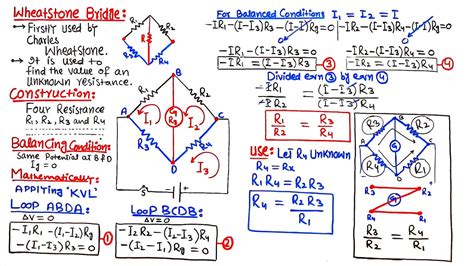 Wheatstone Bridge:
→ Firstly used by
Charles
Wheatstone.
→ It is used to
find the value of an
Unknown resistance.
Construction:
Four Resistance
R₁, R₂, R₃ and R₄
Balancing Condition:
Same Potential at B & D
Ig = 0
Mathematically:
Applying "KVL"
Loop ABDA:
ΔV = 0
-I₁R₁ -(I₁-I₂)Rg
-(I₁-I₃)R₃ = 0
1
R₁
R₂
R
R₃
R₄
B
R₁
R₂
A
G
Rg
C
I₁
I₂
R₃
R₄
D
I₃
Loop BCDB:
ΔV = 0
-I₂R₂ -(I₂-I₃)R₄
-(I₂-I₁)Rg = 0
2
For Balanced Conditions I₁ = I₂ = I
-IR₁-(I-I₃)R₃-(I-I)Rg=0
-IR₂-(I-I₃)R₄-(I-I)Rg=0
-IR₁-(I-I₃)R₃=0
-IR₁ = (I-I₃)R₃
3
-IR₂-(I-I₃)R₄=0
-IR₂ = (I-I₃)R₄
4
Divided eqn 3 by eqn 4
-IR₁ / -IR₂ = (I-I₃)R₃ / (I-I₃)R₄
R₁/R₂ = R₃/R₄
Use: Let R₄ Unknown
R₄ = Rx
R₁R₄ = R₂R₃
R₄ = R₂R₃/R₁
B
R₃
R₂
A
G
C
R₁
R₄
D
R₃
R₂
G
R₄
R₁
R₃/R₂ = R₄/R₁